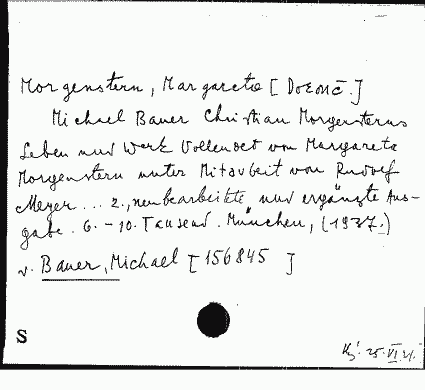 Morgenstern, Margareta [
Michael Bauer Christian Morgensterns
Leben und Werk Vollendet von Margareta
Morgenstern unter Mitarbeit von Rudolf
Meyer ... 2., neubearbeitete und ergänzte Aus-
gabe. 6. - 10. Tausend. München, (1937.)
v. Bauer, Michael [156845 ]
S
25. VI.